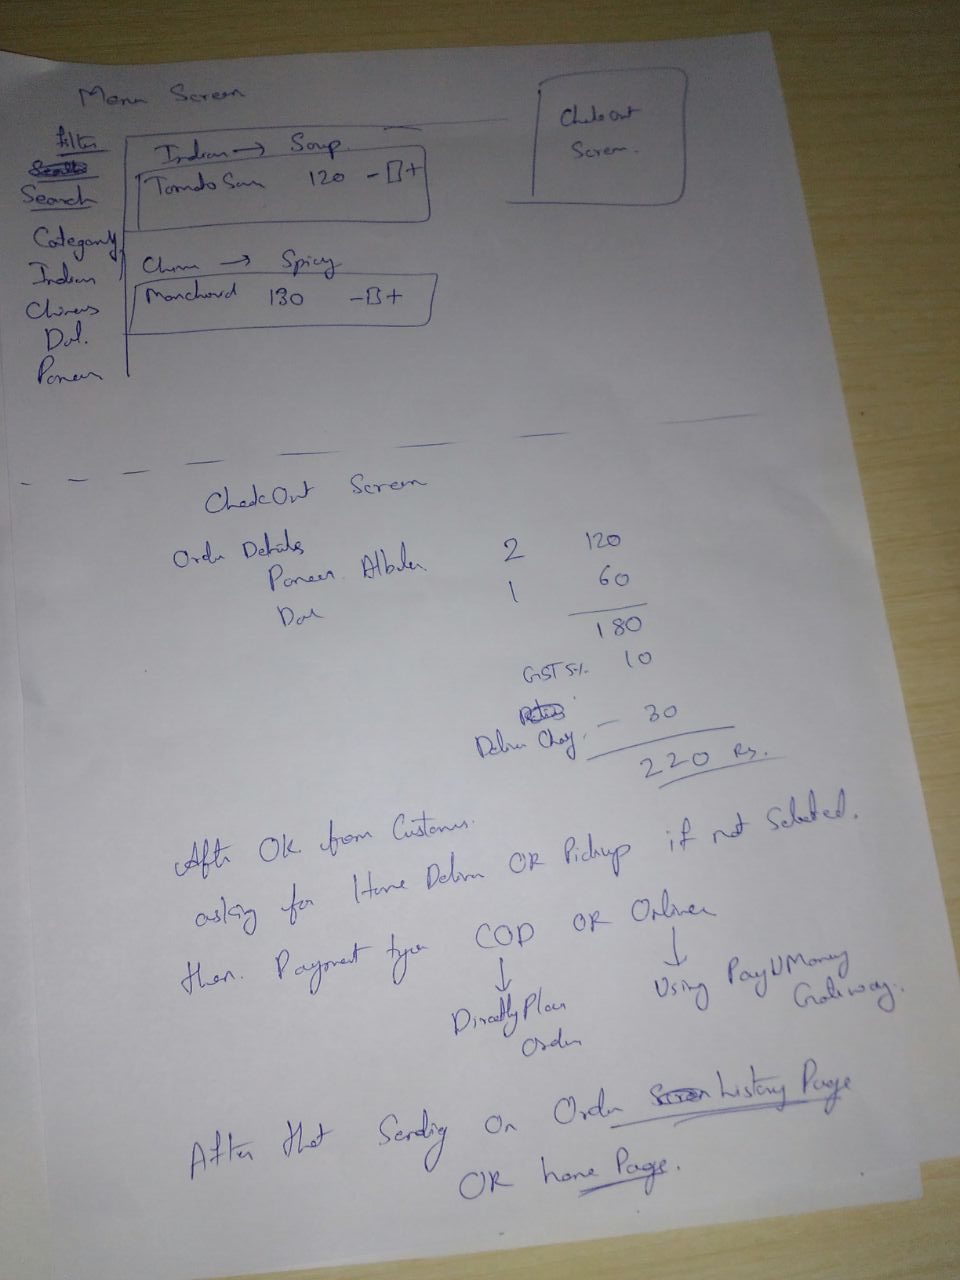 Menu Screen
Filter
Search
Category
Indian
Chines
Dal.
Paneer
Indian → Soup
Tomato Sou 120 - +
China → Spicy
130 - +
CheckOut
Screen.
CheckOut Screen
Order Details
Paneer. 2 120
Dal 1 60
180
GST 5% 10
30
220 Rs.
After OK from Customer.
asking for Home Deliver OR Pickup if not Selected.
then. Payment type COD OR Online
↓ ↓
Directly Place
Order
Using PayUMoney
Gateway.
After that Sending on Order Listing Page
OR home Page.